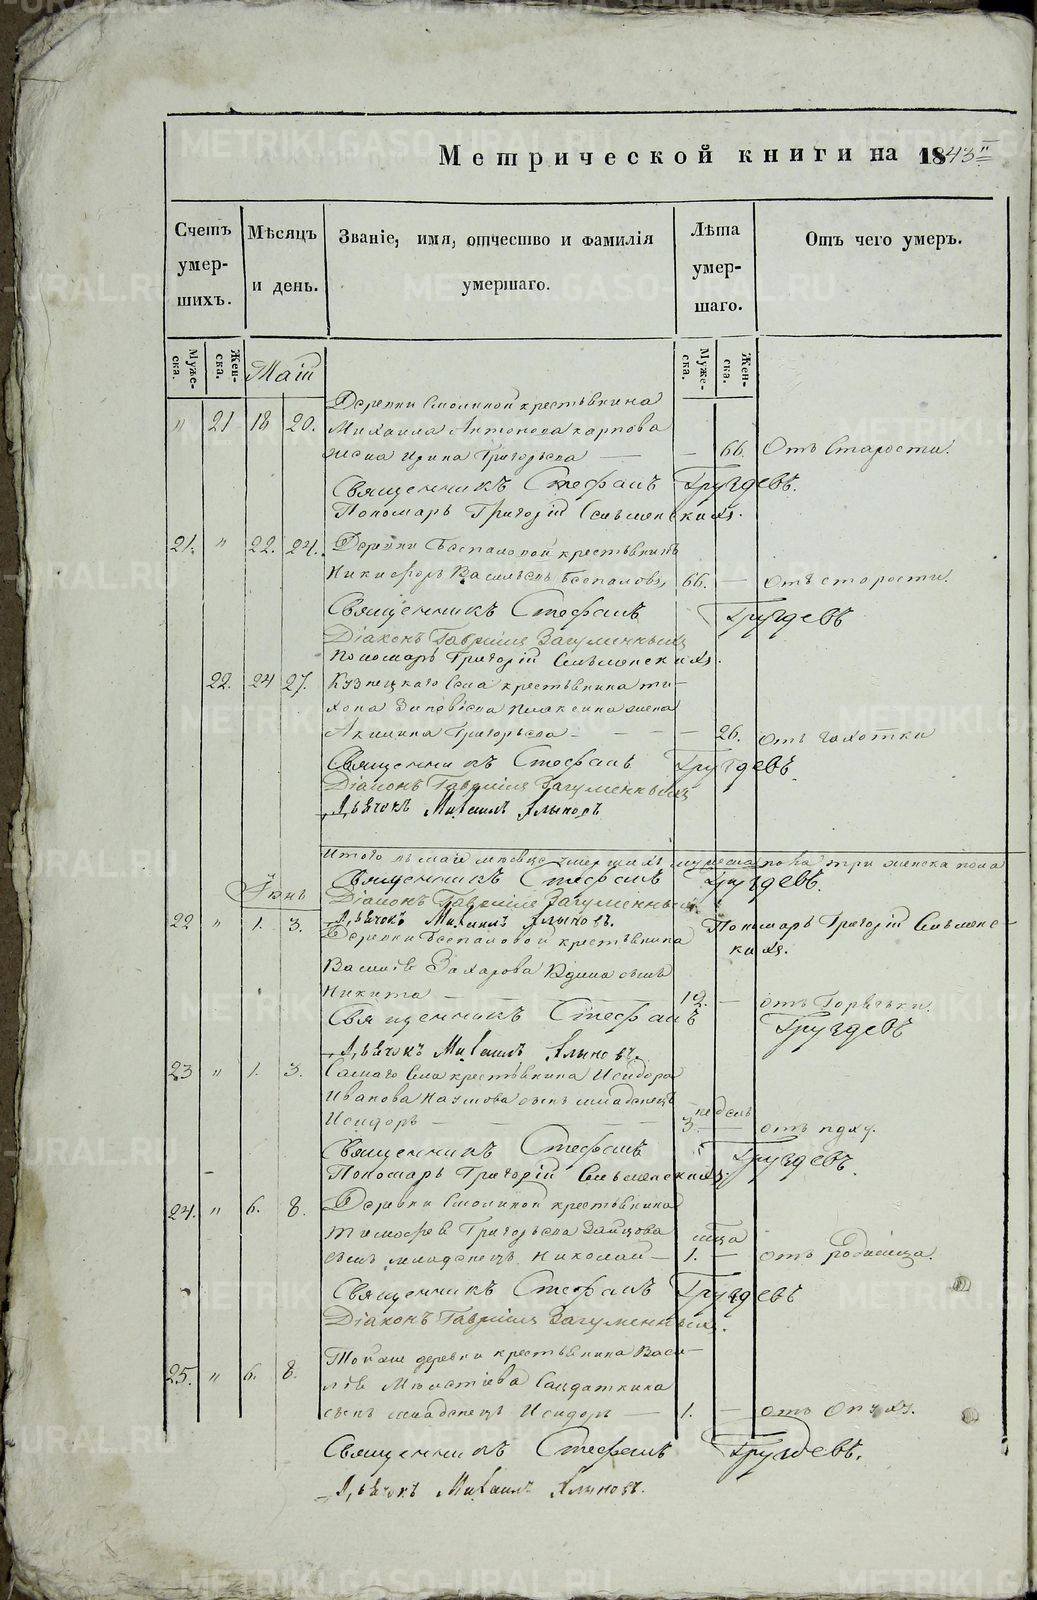 Метрической книги на 1843
Счетъ умер-шихъ.
Мѣсяцъ и день.
Званіе, имя, отчество и фамилія умершаго.
Лѣта умер-шаго.
Отъ чего умеръ.
Муже-ска. Жен-ска.
Маій
Муже-ска. Жен-ска.
Деревни Смолиной крестьянина
" 21 18 20. Михаила Антонова Карпова
жена Ирина Григорьева — 66. Отъ Старости.
Священникъ Стефанъ Груздевъ.
Пономарь Григорій
21. " 22. 24. Деревни Беспаловой крестьянинъ
Никифоръ Васильевъ Беспаловъ, 66. — отъ старости.
Священникъ Стефанъ Груздевъ
Діаконъ Гавріилъ Загуменныхъ
Пономарь Григорій
22. 24 27. Кузнецкаго Села крестьянина Ти-
хона жена
Акилина Григорьева — — — 26. отъ чахотки
Священникъ Стефанъ Груздевъ.
Діаконъ Гавріилъ Загуменныхъ
Дьячокъ Михаилъ Хлыновъ
Итого въ маіе месяце умершихъ мужеска пола три женска пола
Священникъ Стефанъ Груздевъ.
Іюнь
Діаконъ Гавріилъ Загуменныхъ
Дьячокъ Михаилъ Хлыновъ. Пономарь Григорій
22 " 1. 3. Деревни Беспаловой крестьянина
Василія Захарова сынъ
Никита — 12. — отъ Горячки.
Священникъ Стефанъ Груздевъ
Дьячокъ Михаилъ Хлыновъ.
23 " 1. 3. Самаго Села крестьянина Исидора
Иванова Наумова сынъ младенецъ
недель
Исидоръ — — — 3. — отъ
Священникъ Стефанъ Груздевъ.
Пономарь Григорій
24. " 6. 8. Деревни Смолиной крестьянина
Тимофея Григорьева Зайцова
сынъ младенецъ Николай — 1. — отъ родимца.
Священникъ Стефанъ Груздевъ
Діаконъ Гавріилъ Загуменныхъ.
25. " 6. 8. Той же деревни крестьянина Васи-
лія
сынъ младенецъ Исидоръ — 1. — отъ
Священникъ Стефанъ Груздевъ.
Дьячокъ Михаилъ Хлыновъ.
METRIKI.GASO-URAL.RU